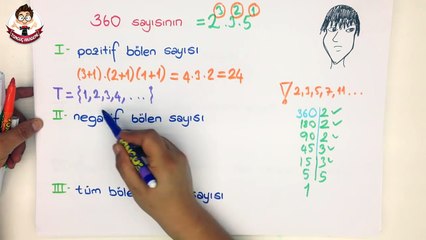 360 sayısının = 2³.3².5¹
I- pozitif bölen sayısı
(3+1).(2+1)(1+1) = 4.3.2 = 24
T = {1,2,3,4, ... }
II- negatif bölen sayısı
III- tüm böl sayısı
! 2,3,5,7,11 ...
360 | 2 ✓
180 | 2 ✓
90 | 2 ✓
45 | 3 ✓
15 | 3 ✓
5 | 5
1